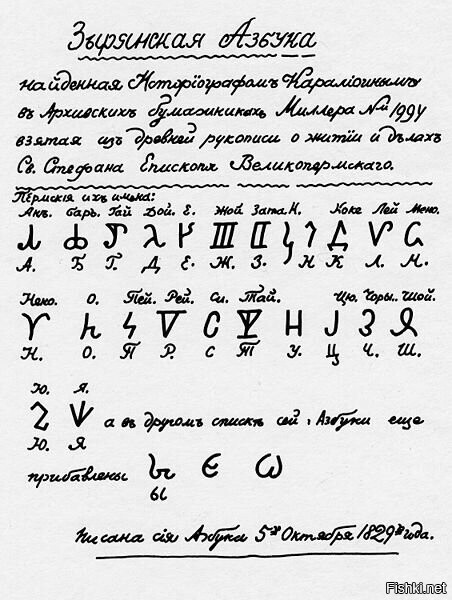 Зырянская Азбука
найденная Исторіографомъ
въ Архивскихъ Миллера
взятая изъ древней рукописи о житіи и дѣлахъ
Св. Стефана Епископа Великопермскаго.
Пермскія ихъ имена:
Анъ. баръ. Гай Дой. Е. Жой Зата. И. Коке Лей Мено.
А. Б Г. Д Е. Ж. З. И К Л. М.
Нено. О. Пей. Рей. Си. Тай. Цю. Чоры. Шой.
Н. О. П Р. С Т У. Ц Ч. Ш.
Ю. Я.
а въ другомъ спискѣ сей Азбуки еще
Ю. Я
прибавлены Є Ѡ
ы
Писана сія Азбука 5го Октября 1829го года.
Fishki.net